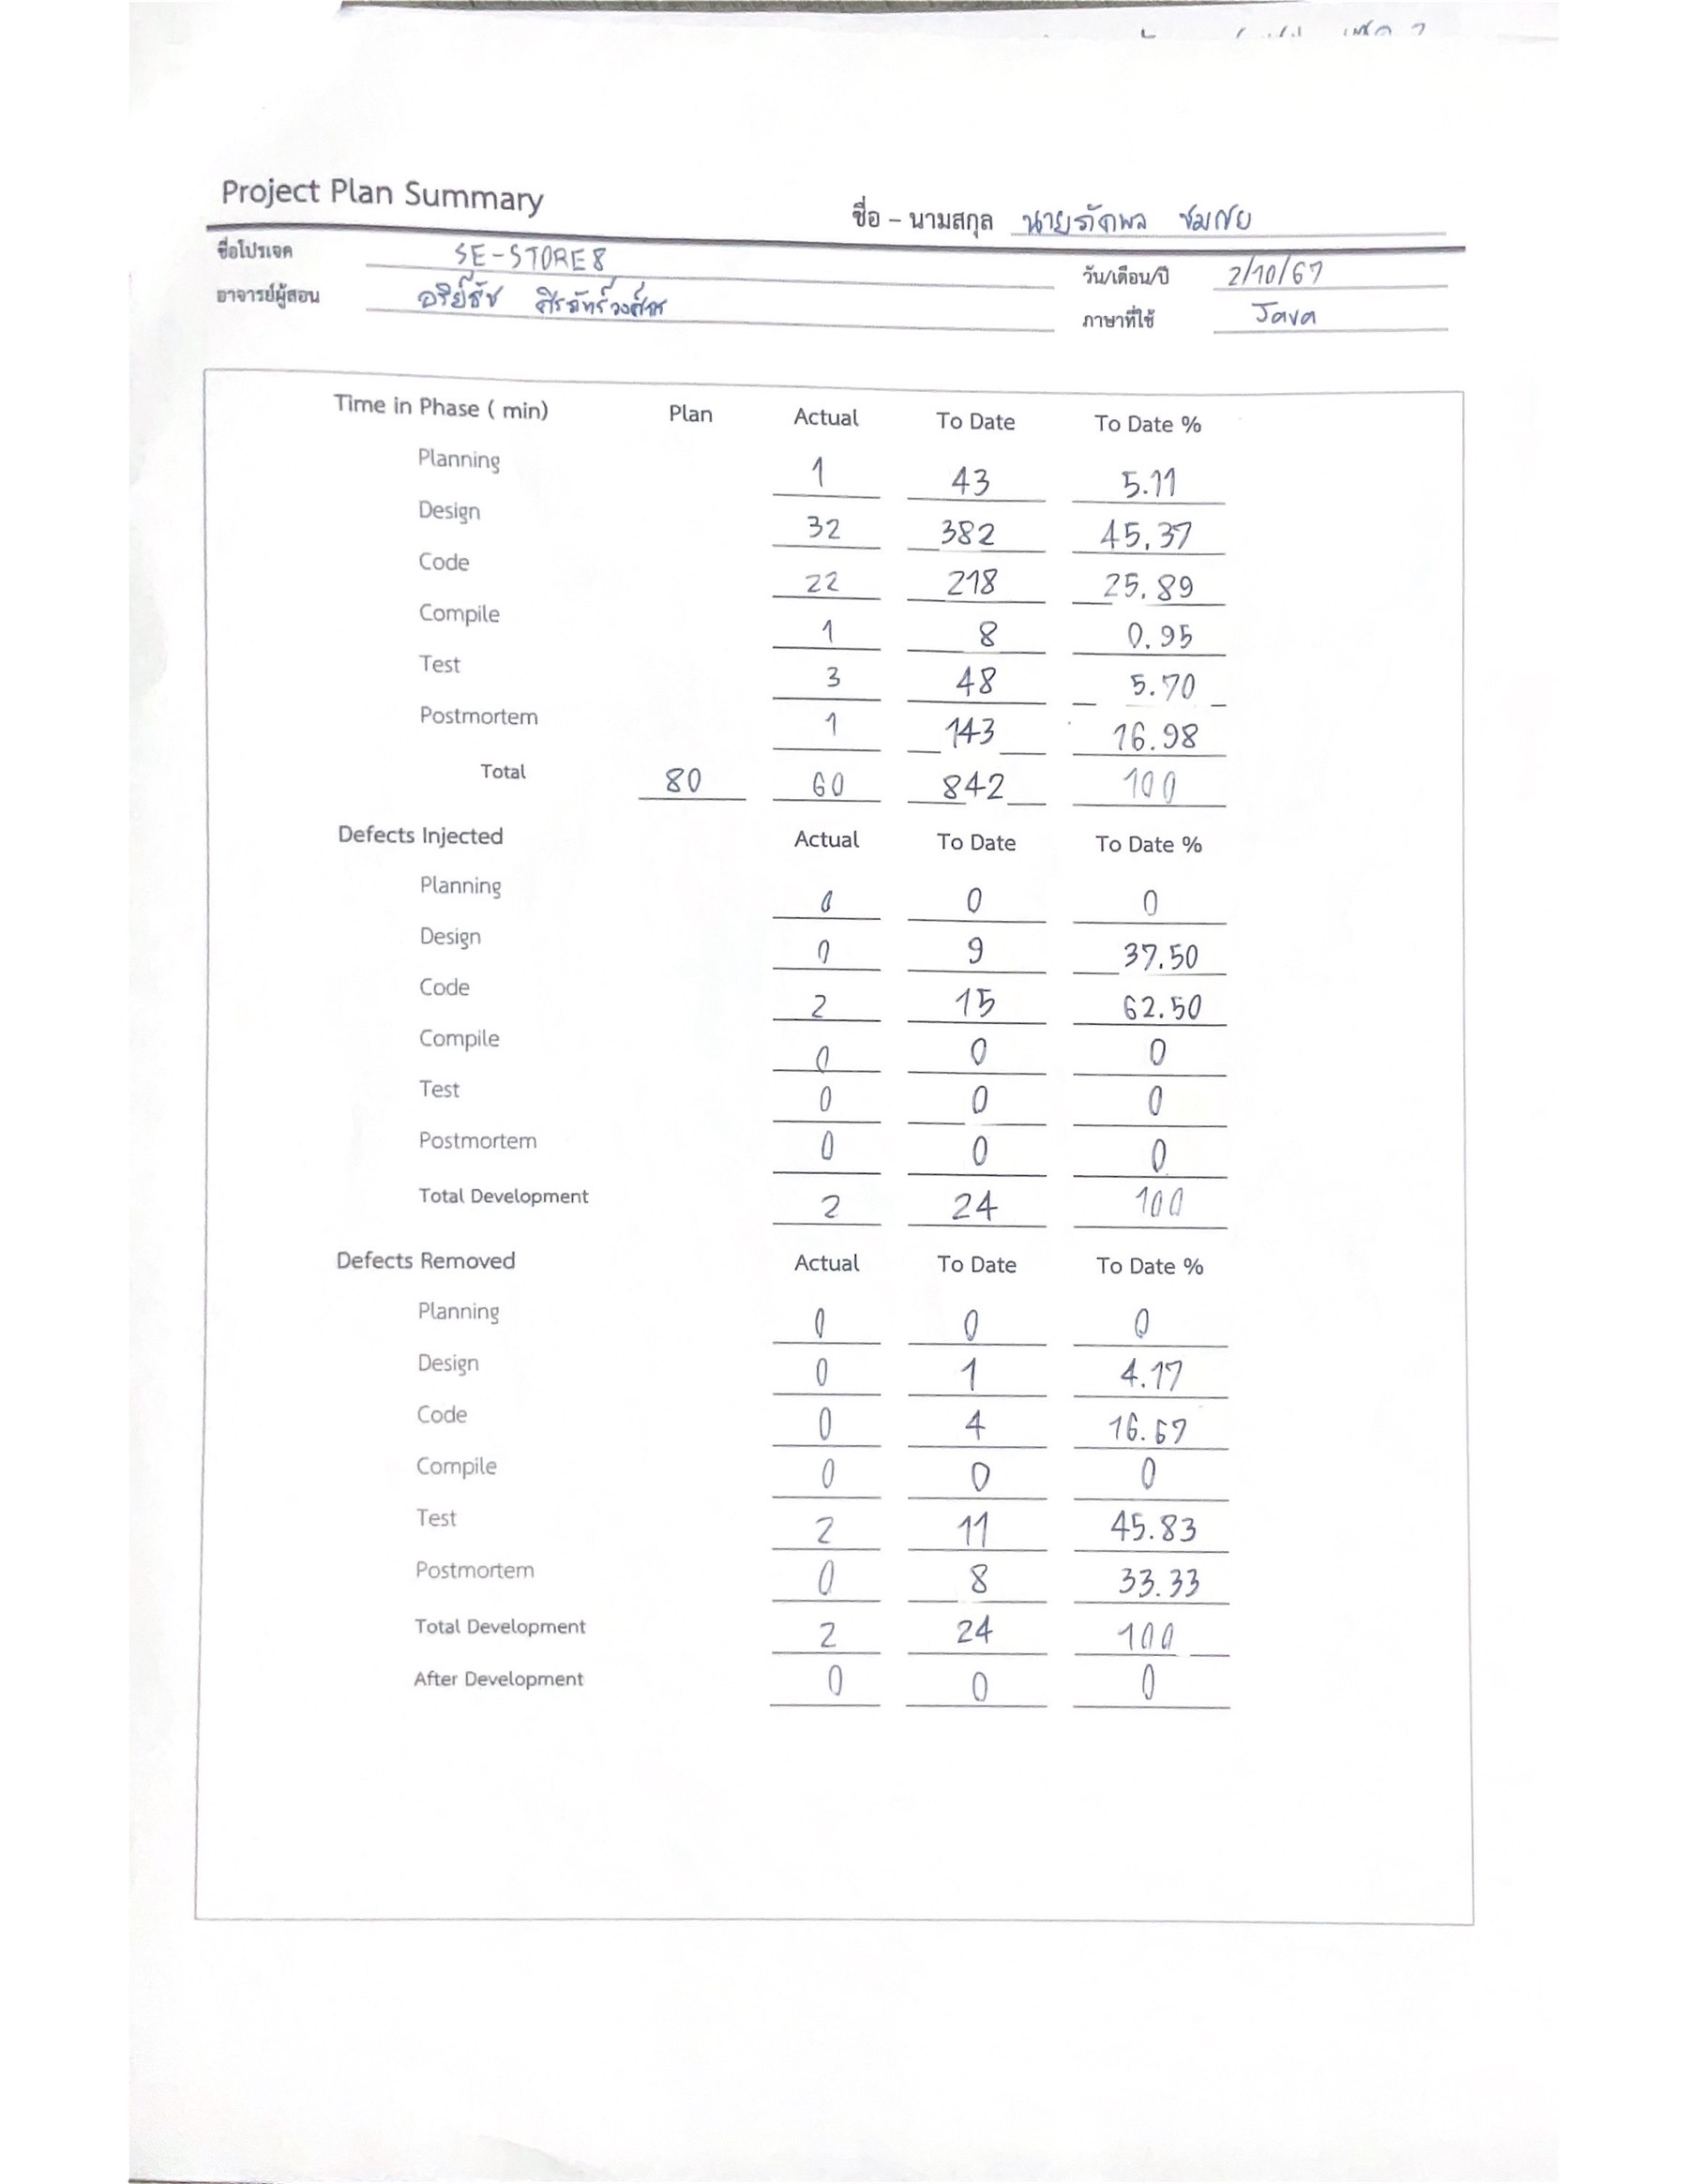 Project Plan Summary
ชื่อ – นามสกุล นายภัคพล ชมภัย
ชื่อโปรเจค SE-STORE8
วัน/เดือน/ปี 2/10/67
อาจารย์ผู้สอน อริย์ธัช ศิรจันทร์วงศ์สา
ภาษาที่ใช้ Java
Time in Phase ( min) Plan Actual To Date To Date %
Planning 1 43 5.11
Design 32 382 45.37
Code 22 218 25.89
Compile 1 8 0.95
Test 3 48 5.70
Postmortem 1 143 16.98
Total 80 60 842 100
Defects Injected Actual To Date To Date %
Planning 0 0 0
Design 0 9 37.50
Code 2 15 62.50
Compile 0 0 0
Test 0 0 0
Postmortem 0 0 0
Total Development 2 24 100
Defects Removed Actual To Date To Date %
Planning 0 0 0
Design 0 1 4.17
Code 0 4 16.67
Compile 0 0 0
Test 2 11 45.83
Postmortem 0 8 33.33
Total Development 2 24 100
After Development 0 0 0